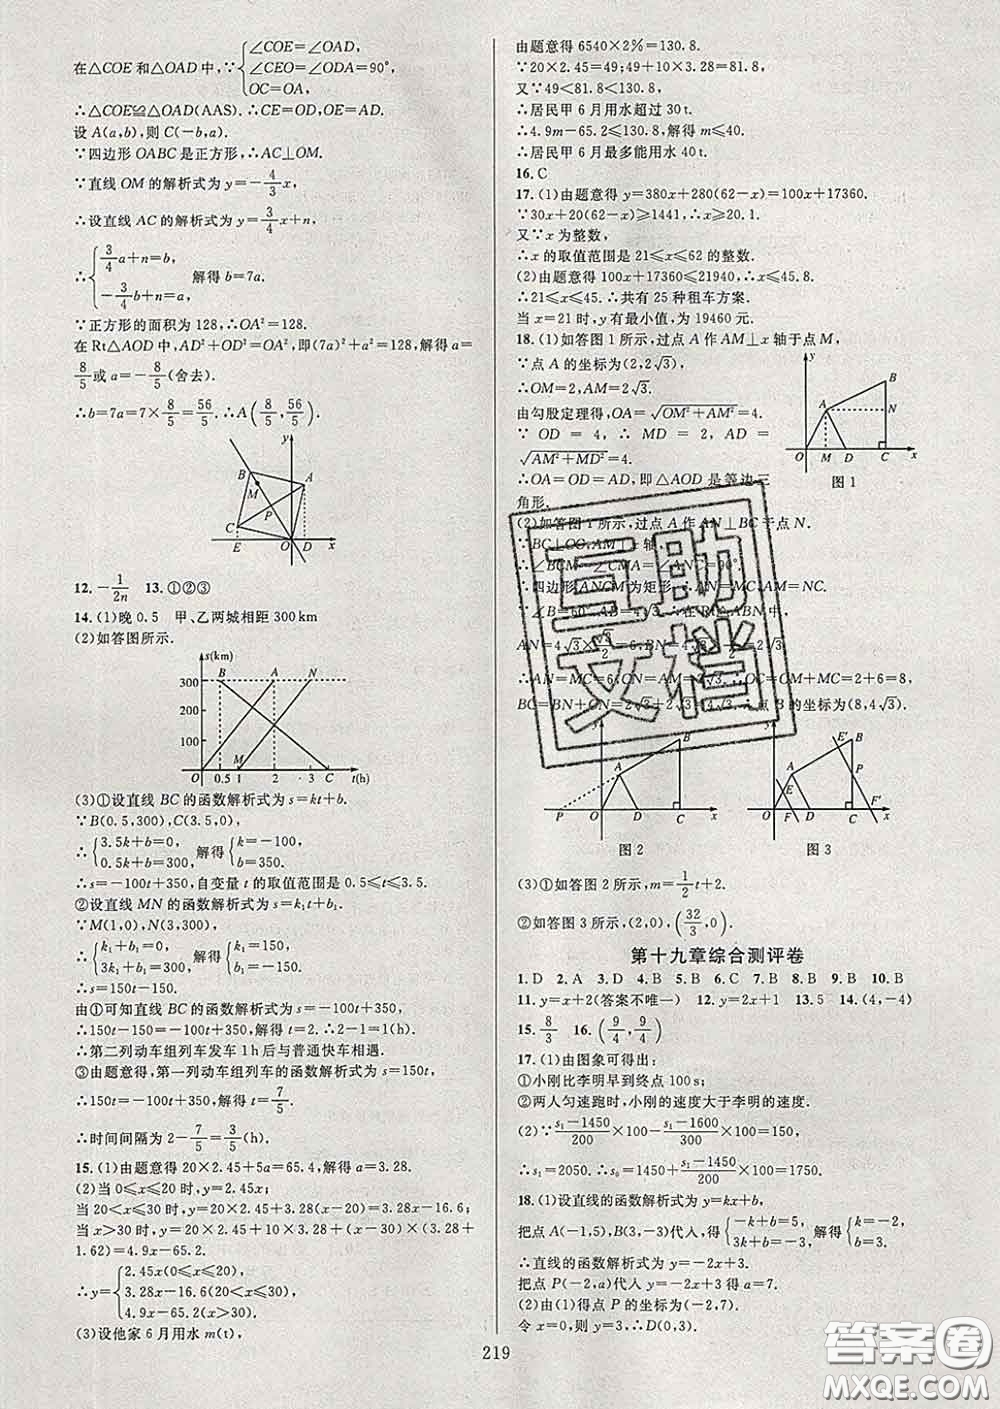 在△COE和△OAD中,∵{∠COE=∠OAD,
∠CEO=∠ODA=90°,
OC=OA,
∴△COE≌△OAD(AAS).∴CE=OD,OE=AD.
设A(a,b),则C(-b,a).
∵四边形OABC是正方形,∴AC⊥OM.
∵直线OM的解析式为y=-4/3x,
∴设直线AC的解析式为y=3/4x+n,
∴{3/4a+n=b,
-3/4b+n=a, 解得b=7a.
∵正方形的面积为128,∴OA²=128.
在Rt△AOD中,AD²+OD²=OA²,即(7a)²+a²=128,解得a=
8/5或a=-8/5(舍去).
∴b=7a=7×8/5=56/5.∴A(8/5,56/5).
y
B
M
A
P
C
E
O
D
x
12.-1/2n 13.①②③
14.(1)晚0.5 甲、乙两城相距300km
(2)如答图所示.
s(km)
300
200
100
B
A
N
O
0.5
M
1
2
3
C
t(h)
(3)①设直线BC的函数解析式为s=kt+b.
∵B(0.5,300),C(3.5,0),
∴{3.5k+b=0,
0.5k+b=300, 解得{k=-100,
b=350.
∴s=-100t+350,自变量t的取值范围是0.5≤t≤3.5.
②设直线MN的函数解析式为s=k₁t+b₁.
∵M(1,0),N(3,300),
∴{k₁+b₁=0,
3k₁+b₁=300, 解得{k₁=150,
b₁=-150.
∴s=150t-150.
由①可知直线BC的函数解析式为s=-100t+350,
∴150t-150=-100t+350,解得t=2.∴2-1=1(h).
∴第二列动车组列车发车1h后与普通快车相遇.
③由题意得,第一列动车组列车的函数解析式为s=150t,
∴150t=-100t+350,解得t=7/5.
∴时间间隔为2-7/5=3/5(h).
15.(1)由题意得20×2.45+5a=65.4,解得a=3.28.
(2)当0≤x≤20时,y=2.45x;
当20<x≤30时,y=20×2.45+3.28(x-20)=3.28x-16.6;
当x>30时,y=20×2.45+10×3.28+(x-30)×(3.28+
1.62)=4.9x-65.2.
∴y={2.45x(0≤x≤20),
3.28x-16.6(20<x≤30),
4.9x-65.2(x>30).
(3)设他家6月用水m(t),
由题意得6540×2%=130.8.
∵20×2.45=49;49+10×3.28=81.8,
又∵49<81.8<130.8,
∴居民甲6月用水超过30t.
∴4.9m-65.2≤130.8,解得m≤40.
∴居民甲6月最多能用水40t.
16.C
17.(1)由题意得y=380x+280(62-x)=100x+17360.
∵30x+20(62-x)≥1441,∴x≥20.1.
又∵x为整数,
∴x的取值范围是21≤x≤62的整数.
(2)由题意得100x+17360≤21940,∴x≤45.8.
∴21≤x≤45.∴共有25种租车方案.
当x=21时,y有最小值,为19460元.
18.(1)如答图1所示,过点A作AM⊥x轴于点M,
∵点A的坐标为(2,2√3),
∴OM=2,AM=2√3.
由勾股定理得,OA=√(OM²+AM²)=4.
∵OD=4,∴MD=2,AD=
√(AM²+MD²)=4.
∴OA=OD=AD,即△AOD是等边三
角形.
y
B
A
N
O
M
D
C
x
图1
(2)如答图1所示,过点A作AN⊥BC于点N.
∵BC⊥OC,AM⊥x轴,
∴∠BCM=∠CMA=∠ANC=90°.
∴四边形ANCM为矩形.∴AN=MC,AM=NC.
∵∠B=60°,AB=4√3,∴在Rt△ABN中,
AN=4√3×√3/2=6,BN=4√3×1/2=2√3.
∴AN=MC=6,CN=AM=2√3.∴OC=OM+MC=2+6=8,
BC=BN+CN=2√3+2√3=4√3.∴点B的坐标为(8,4√3).
y
B
A
P
O
D
C
x
图2
y
E′
B
A
P
E
O
F
D
C
F′
x
图3
(3)①如答图2所示,m=1/2t+2.
②如答图3所示,(2,0),(32/3,0).
第十九章综合测评卷
1.D 2.A 3.D 4.B 5.B 6.C 7.B 8.B 9.B 10.B
11.y=x+2(答案不唯一) 12.y=2x+1 13.5 14.(4,-4)
15.8/3 16.(9/4,9/4)
17.(1)由图象可得出:
①小刚比李明早到终点100s;
②两人匀速跑时,小刚的速度大于李明的速度.
(2)∵(s₁-1450)/200×100=(s₁-1600)/300×100,
∴s₁=2050.∴s₀=1450+(s₁-1450)/200×100=1750.
18.(1)设直线的函数解析式为y=kx+b,
把点A(-1,5),B(3,-3)代入,得{-k+b=5,
3k+b=-3, 解得{k=-2,
b=3.
∴直线的函数解析式为y=-2x+3.
把点P(-2,a)代入y=-2x+3得a=7.
(2)由(1)得点P的坐标为(-2,7).
令x=0,则y=3,∴D(0,3).
219
互助
文档
答案圈
MXQE.COM